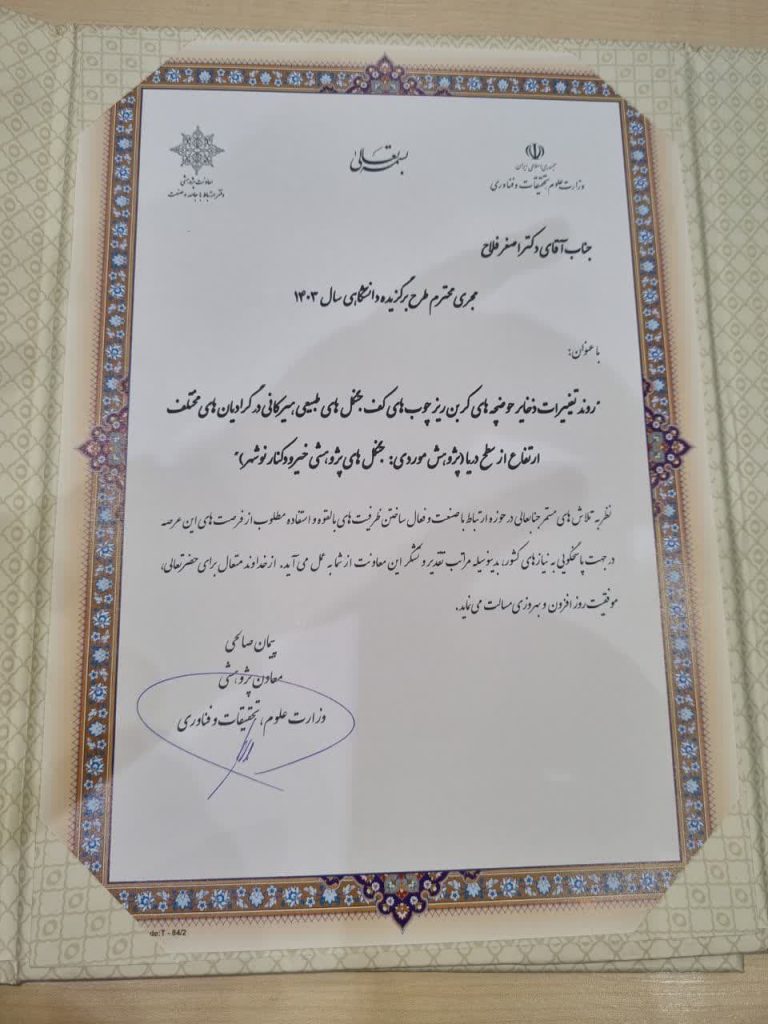 بسمه تعالی
جمهوری اسلامی ایران
وزارت علوم، تحقیقات و فناوری
معاونت پژوهشی
دفتر ارتباط با جامعه و صنعت
جناب آقای دکتر اصغر فلاح
مجری محترم طرح برگزیده دانشگاهی سال ۱۴۰۳
با عنوان:
"روند تغییرات ذخایر حوضچه های کربن ریز چوب های کف جنگل های طبیعی هیرکانی در گرادیان های مختلف
ارتفاع از سطح دریا (پژوهش موردی: جنگل های پژوهشی خیرودکنار نوشهر)"
نظر به تلاش های مستمر جنابعالی در حوزه ارتباط با صنعت و فعال ساختن ظرفیت های بالقوه و استفاده مطلوب از فرصت های این عرصه
در جهت پاسخگویی به نیازهای کشور، بدینوسیله مراتب تقدیر و تشکر این معاونت از شما به عمل می آید. از خداوند متعال برای حضرتعالی،
موفقیت روز افزون و بهروزی مسالت می نماید.
پیمان صالحی
معاون پژوهشی
وزارت علوم، تحقیقات و فناوری
de:T - 84/2